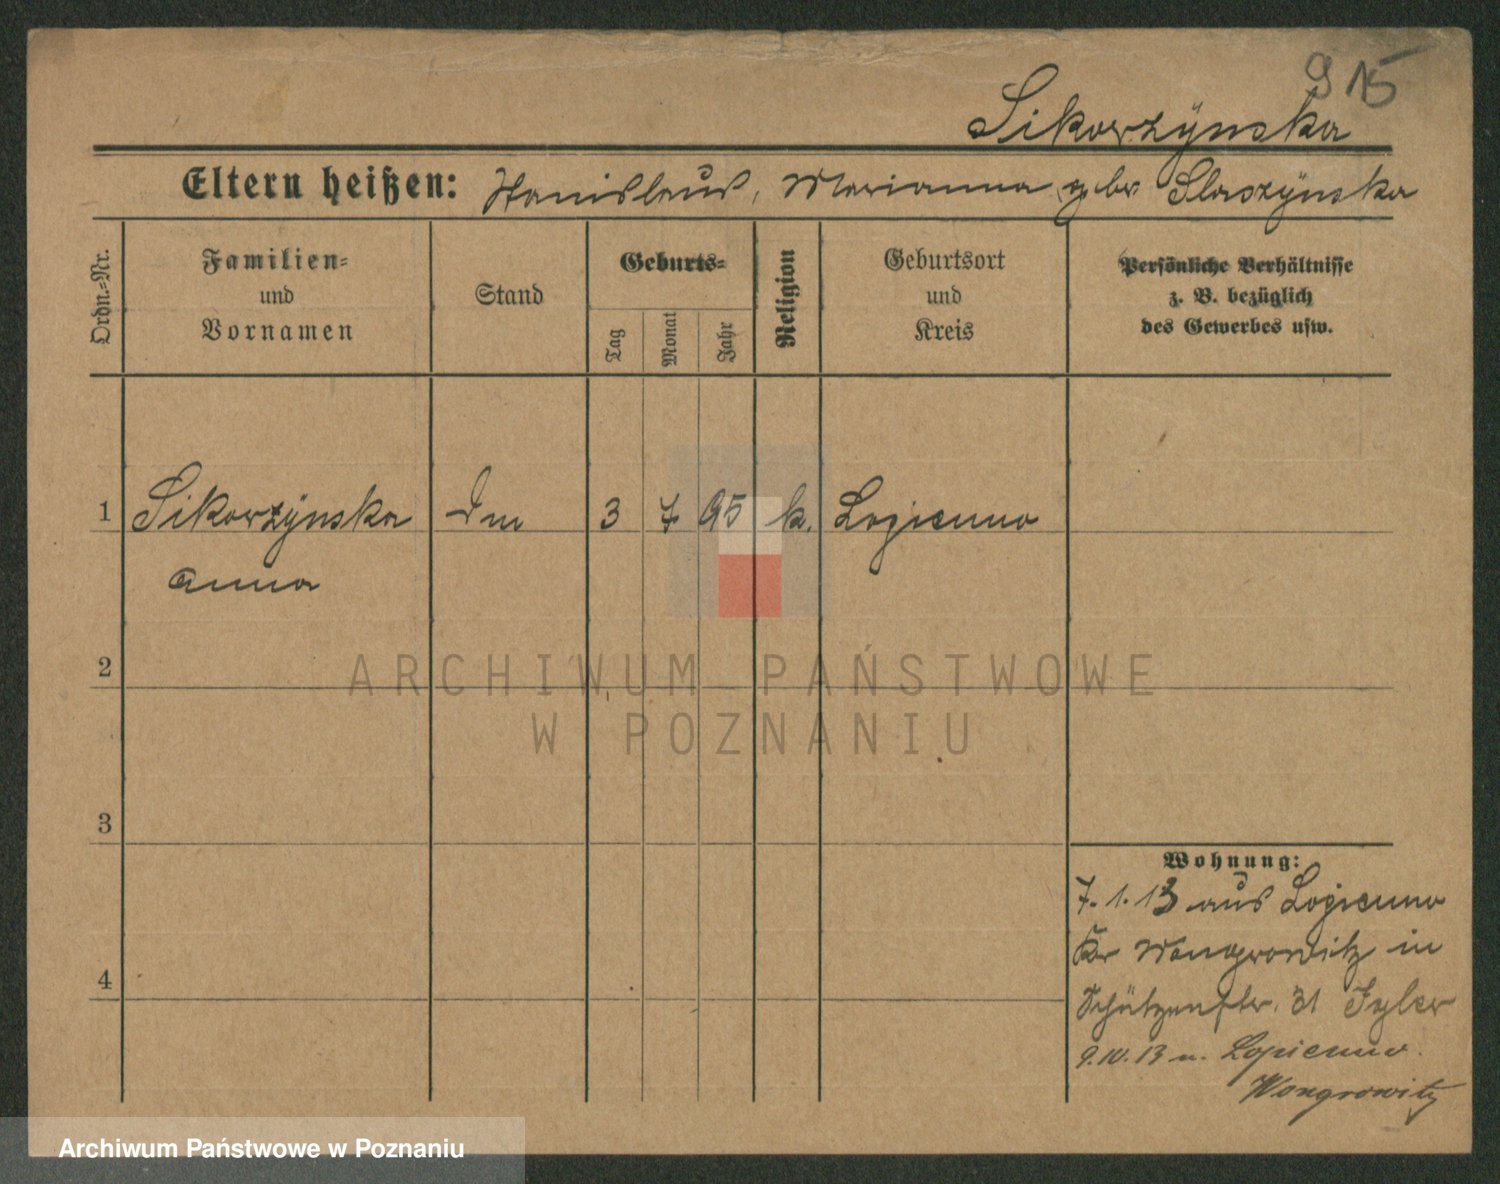 9 15
Sikorzÿnska
Eltern heißen: Stanislaus, Marianna gebr Slaszÿnska
Ordn.-Nr.
Familien-
und
Vornamen
Stand
Geburts-
Tag
Monat
Jahr
Religion
Geburtsort
und
Kreis
Persönliche Verhältnisse
z. B. bezüglich
des Gewerbes usw.
1 Sikorzÿnska 3 7 95 k. Lopienno
Anna
2
3
4
ARCHIWUM PAŃSTWOWE
W POZNANIU
Wohnung:
7. 1. 13 aus Lopienno
Kr Wongrowitz in
Schützenstr. 31
9.10.13 n. Lopienno.
Wongrowitz
Archiwum Państwowe w Poznaniu